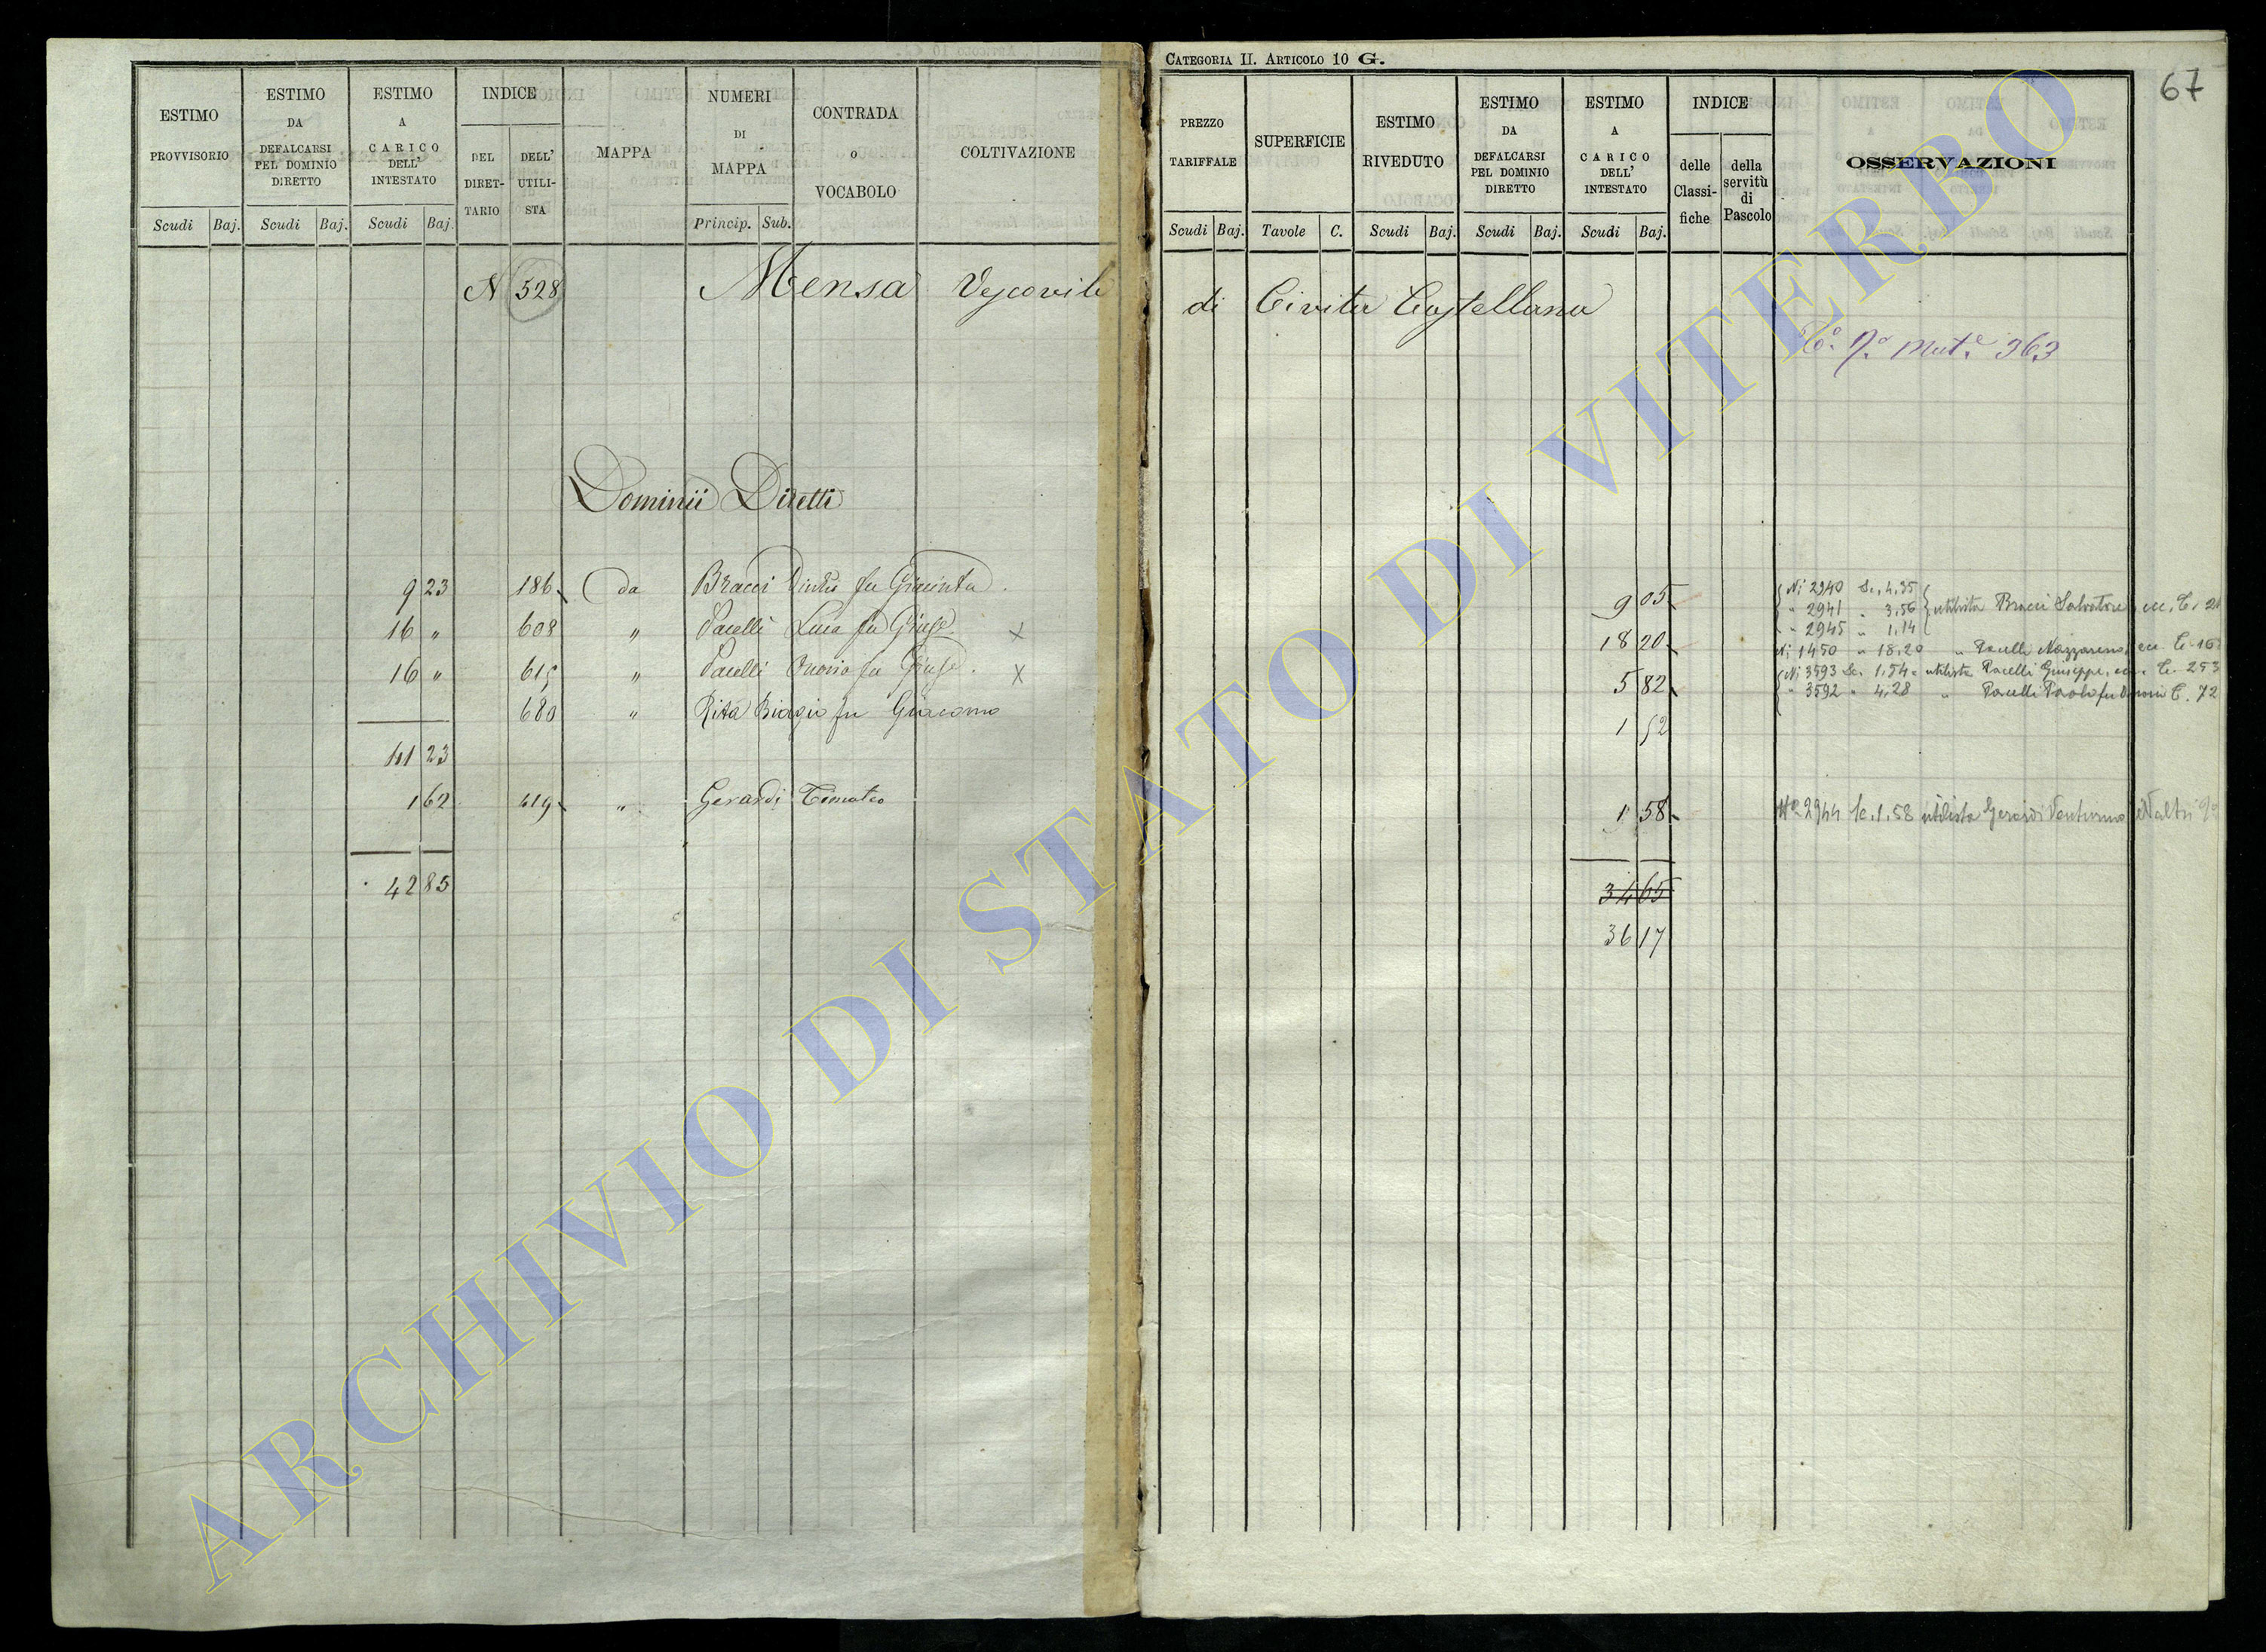 CATEGORIA II. ARTICOLO 10 G.
67
ESTIMO PROVVISORIO
Scudi Baj.
ESTIMO DA DEFALCARSI PEL DOMINIO DIRETTO
Scudi Baj.
ESTIMO A CARICO DELL' INTESTATO
Scudi Baj.
INDICE
DEL DIRETTARIO
DELL' UTILISTA
MAPPA
NUMERI DI MAPPA
Princip. Sub.
CONTRADA o VOCABOLO
COLTIVAZIONE
PREZZO TARIFFALE
Scudi Baj.
SUPERFICIE
Tavole C.
ESTIMO RIVEDUTO
Scudi Baj.
ESTIMO DA DEFALCARSI PEL DOMINIO DIRETTO
Scudi Baj.
ESTIMO A CARICO DELL' INTESTATO
Scudi Baj.
INDICE
delle Classifiche
della servitù di Pascolo
OSSERVAZIONI
N 528 Mensa Vescovile di Civita Castellana
363
Dominii Diretti
9 23 186 da Bracci fu Giacinto 9 05
16 " 608 " Pacelli Luca fu Giusp. x 18 20
16 " 615 " Pacelli fu Giusp. x 5 82
680 " Rita Biagio fu Giacomo 1 52
41 23
1 62 419 " Gerardi Timoteo 1 58
42 85
34 65
36 17
Ni 2940 Sc. 4,35
" 2941 " 3,56 utilista Bracci Salvatore ecc. C. 21
" 2945 " 1,14
Ni 1450 " 18,20 " Pacelli Nazzareno ecc. C.
Ni 3593 Sc. 1,54 " utilista Pacelli Giuseppe, ecc. C. 253
" 3592 " 4,28 " Pacelli Paolo fu C. 72
No 2944 Sc. 1.58 utilista Gerardi Venturino altri
ARCHIVIO DI STATO DI VITERBO